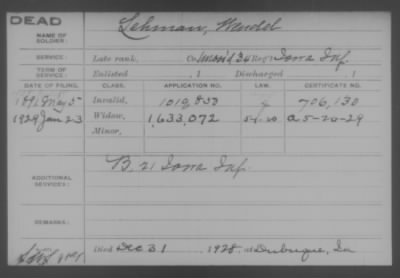 DEAD
NAME OF SOLDIER: Lehman, Wendel
SERVICE: Late rank, Co. Regt Iowa Inf.
TERM OF SERVICE: Enlisted , 1 Discharged , 1
DATE OF FILING. CLASS. APPLICATION NO. LAW. CERTIFICATE NO.
1891 May 5 Invalid, 1019,853 706,130
1929 Jan 23 Widow, 1,633,072 a 5-20-29
Minor,
ADDITIONAL SERVICES: B, 21 Iowa Inf.
REMARKS:
Died Dec 31 1928, at Dubuque, Ia